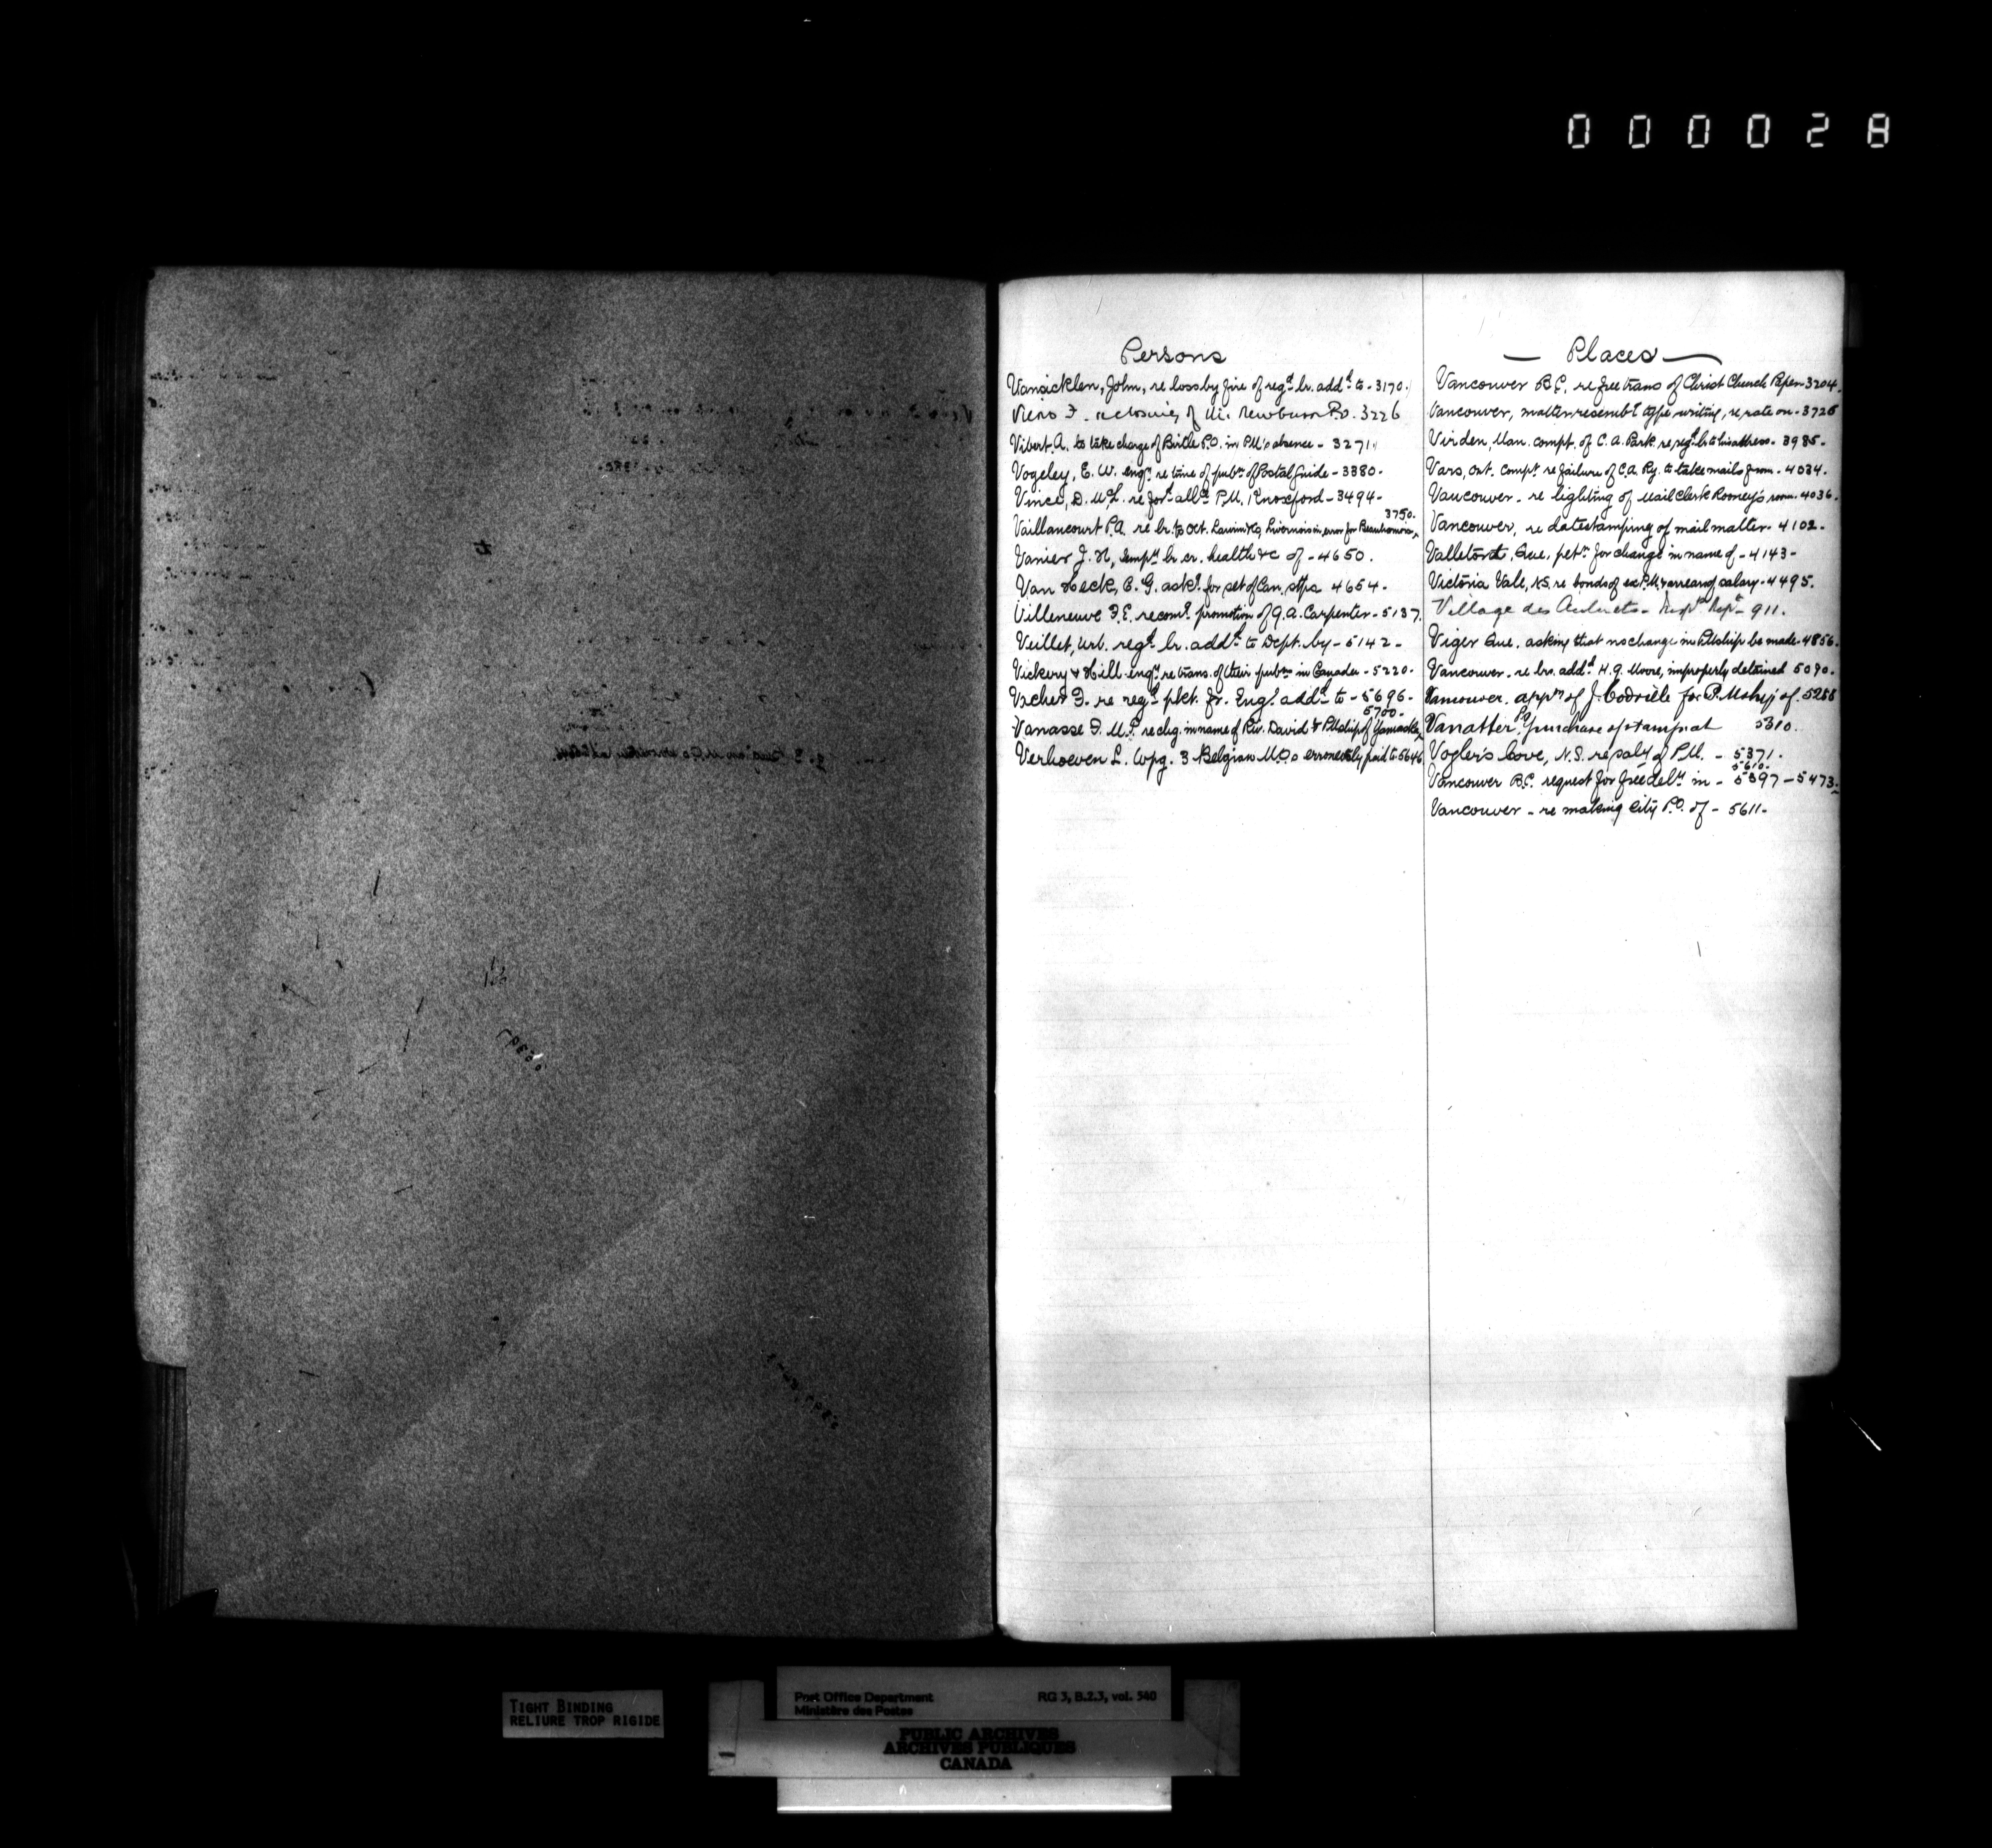 000028
Persons
Vansicklen, John, re loss by fire of regd. lr. addd. to - 3170.
Viens F. re closing of Newburn P.O. 3226
Vibert A. to take charge of Birtle P.O. in P.M's absence - 3271.
Vogeley, E. W. engr. re time of pubn. of Postal Guide - 3380.
Vince, D. McL. re ford. allce. P.M. Knoxford - 3494 -
3750.
Vaillancourt P.A. re lr. to Oct. in error for Beauharnois
Vanier J. N, tempy. lr. cr. health &c of - 4650.
Van Heck, C. G. askg. for set of Can. stps 4654.
Villeneuve F. E. recomg. promotion of G. A. Carpenter - 5137.
Veillet, Urb. regd. lr. addd. to Dept. by - 5142 -
Vickery & Hill engy. re trans. of their pubns in Canada - 5220.
Vecher F. re regd. pkt. fr. Engd. addd. to - 5696 -
5700.
Vanasse F. M.P. re chg. in name of Riv. David & PMship of Yamaska
Verhoeven L. Wpg. 3 Belgian M.O.s erroneously paid to 5646
— Places —
Vancouver B.C. re free trans of Christ Church Paper 3204.
Vancouver, matter resembg type writing, re rate on - 3726
Virden, Man. compt. of C. A. Park re regd. lr to his address - 3985 -
Vars, Ont. Compt. re failure of C.A. Ry. to take mails from - 4034.
Vancouver - re lighting of Mail Clerk Rooney's room. 4036.
Vancouver, re datestamping of mail matter - 4102 -
Valletort Que, petn. for change in name of - 4143 -
Victoria Vale, N.S. re bonds of ex P.M. & arrears of salary - 4495.
Village des Aulnets - 911.
Viger Que. asking that no change in PMship be made - 4856.
Vancouver - re lrs. addd. H. G. Moore, improperly detained 5090 -
Vancouver. appn of J. Codville for P. Mship of. 5258
Vanatter P.O. purchase of stamps at 5310.
Vogler's Cove, N.S. re saly of P.M. - 5371.
5610.
Vancouver B.C. request for free dely. in - 5397 - 5473.
Vancouver - re making City P.O. of - 5611.
TIGHT BINDING
RELIURE TROP RIGIDE
Post Office Department RG 3, B.2.3, vol. 540
Ministère des Postes
PUBLIC ARCHIVES
ARCHIVES PUBLIQUES
CANADA